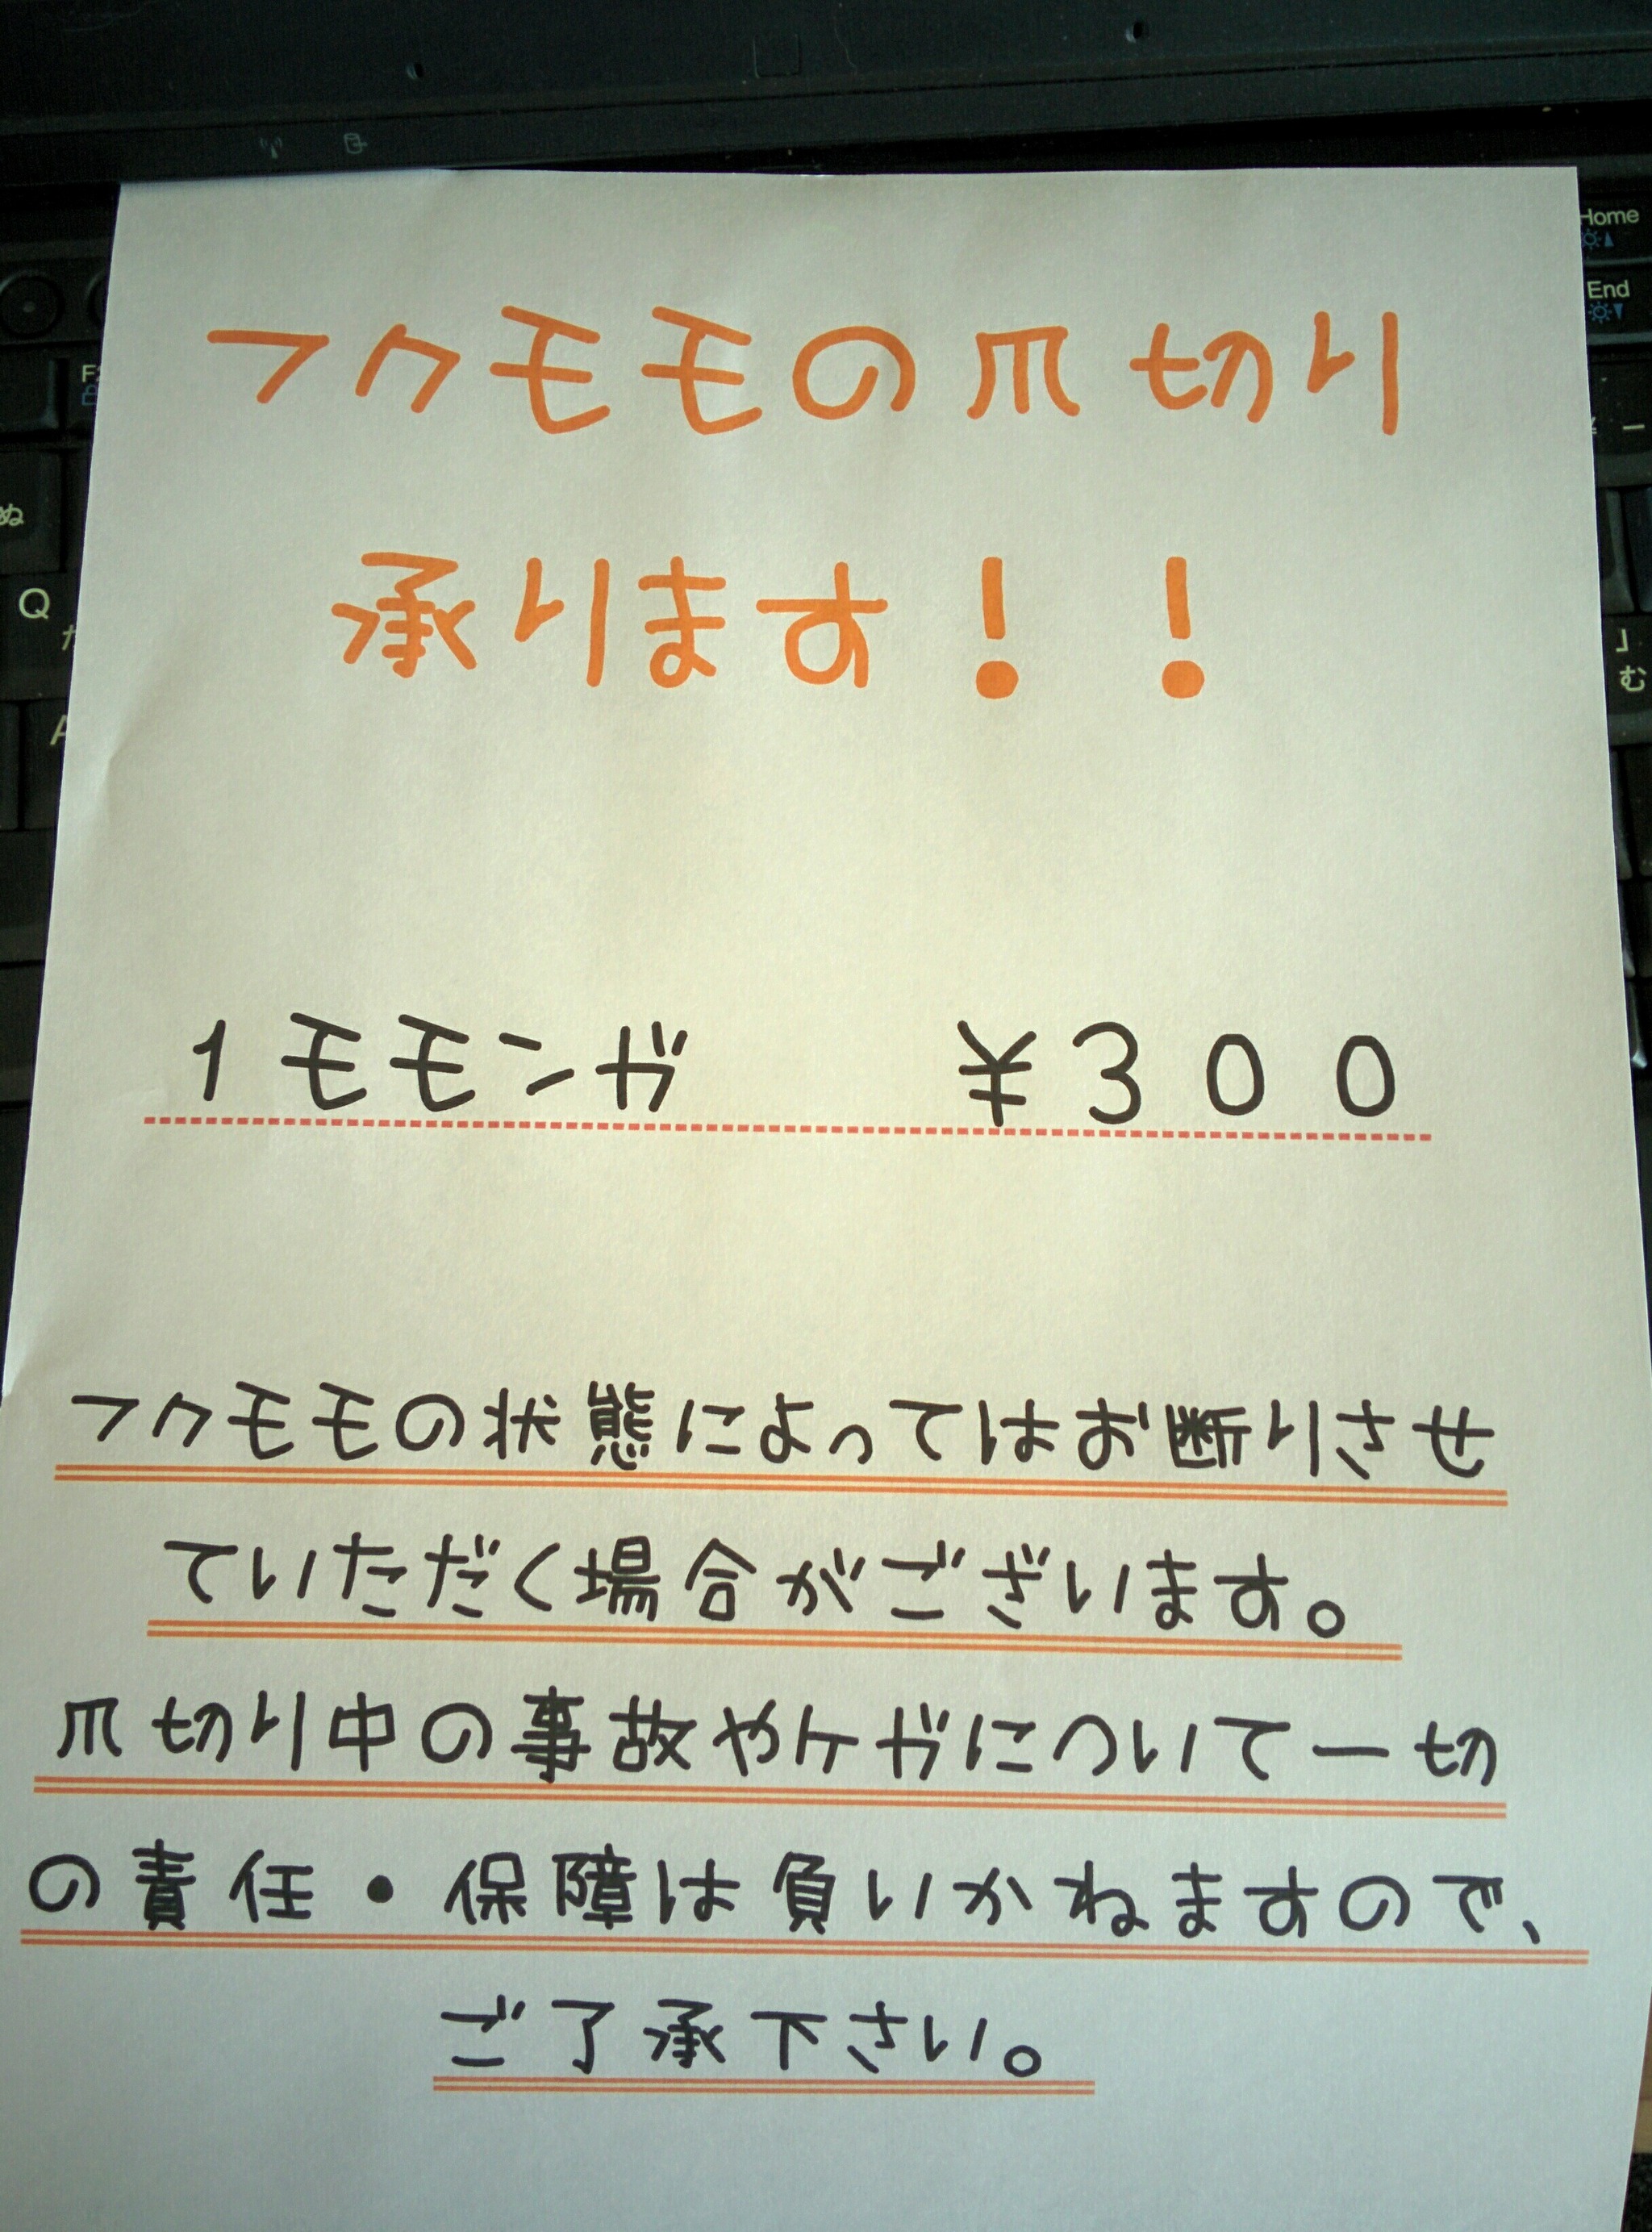 フクモモの爪切り
承ります！！
1モモンガ ¥300
フクモモの状態によってはお断りさせ
ていただく場合がございます。
爪切り中の事故やケガについて一切
の責任・保障は負いかねますので、
ご了承下さい。
Home
End
ぬ
Q
A
む